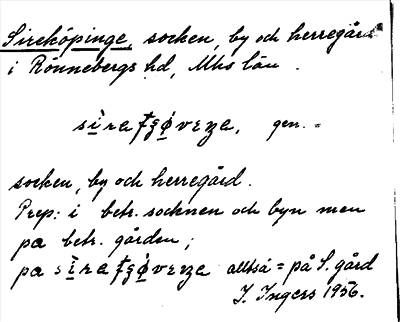 Sireköpinge, socken, by och herregård
i Rönnebergs hd, Mhs län.
gen. =
socken, by och herregård.
Prep: i betr. socknen och byn men
pa betr. gården;
pa alltså = på S. gård
I. Ingers 1956.